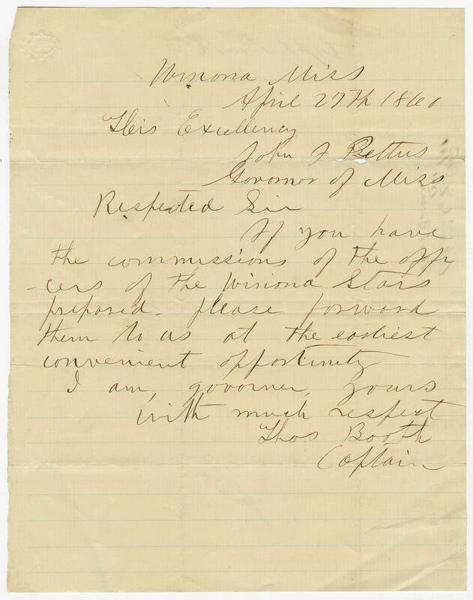 Winona Miss
April 27th 1860
His Excellency
John J Pettus
Governor of Miss
Respected Sir
If you have
the commissions of the offi
-cers of the Winona Stars
prepared. please forward
them to us at the earliest
convenient opportunity
I am, governer, yours
with much respect
Thos Booth
Captain